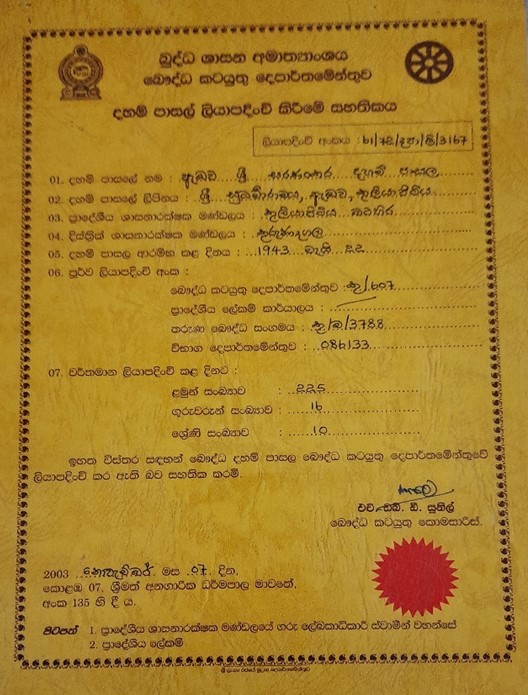 බුද්ධ ශාසන අමාත්‍යාංශය
බෞද්ධ කටයුතු දෙපාර්තමේන්තුව
දහම් පාසල් ලියාපදිංචි කිරීමේ සහතිකය
ලියාපදිංචි අංකය : 61/72/දපා/ලි/3167
01. දහම් පාසලේ නම : ඇඹව ශ්‍රී සරණංකර දහම් පාසල
02. දහම් පාසලේ ලිපිනය : ශ්‍රී සුබෝධාරාමය, ඇඹව, කුලියාපිටිය
03. ප්‍රාදේශීය ශාසනාරක්ෂක මණ්ඩලය : කුලියාපිටිය බටහිර
04. දිස්ත්‍රික් ශාසනාරක්ෂක මණ්ඩලය : කුරුණෑගල
05. දහම් පාසල ආරම්භ කළ දිනය : 1943 මැයි 22
06. පූර්ව ලියාපදිංචි අංක :
බෞද්ධ කටයුතු දෙපාර්තමේන්තුව : කු/607
ප්‍රාදේශීය ලේකම් කාර්යාලය :
තරුණ බෞද්ධ සංගමය : කු/බ/3788
විභාග දෙපාර්තමේන්තුව : 086133
07. වර්තමාන ලියාපදිංචි කළ දිනට :
ළමුන් සංඛ්‍යාව : 225
ගුරුවරුන් සංඛ්‍යාව : 16
ශ්‍රේණි සංඛ්‍යාව : 10
ඉහත විස්තර සඳහන් බෞද්ධ දහම් පාසල බෞද්ධ කටයුතු දෙපාර්තමේන්තුවේ
ලියාපදිංචි කර ඇති බව සහතික කරමි.
එච්. ඩබ්. ඩී. සුනිල්
බෞද්ධ කටයුතු කොමසාරිස්.
2003 නොවැම්බර් මස 07 දින,
කොළඹ 07, ශ්‍රීමත් අනගාරික ධර්මපාල මාවතේ,
අංක 135 හි දී ය.
පිටපත් 1. ප්‍රාදේශීය ශාසනාරක්ෂක මණ්ඩලයේ ගරු ලේඛකාධිකාරී ස්වාමීන් වහන්සේ
2. ප්‍රාදේශීය ලේකම්